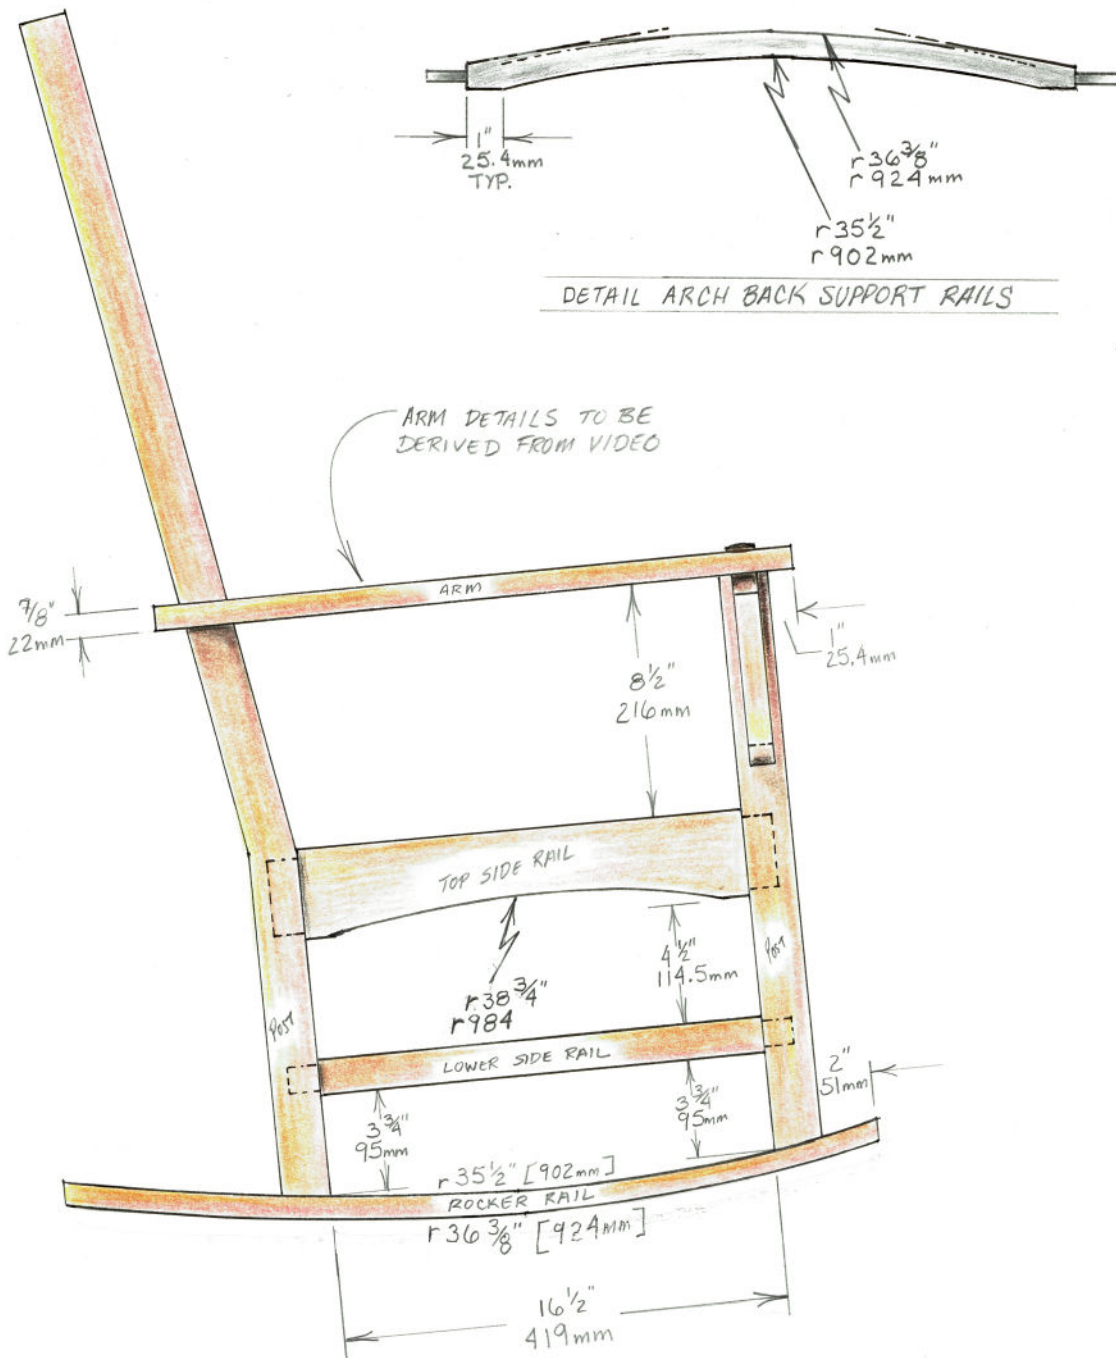 1"
25.4mm
TYP.
r 36 3/8"
r 924mm
r 35 1/2"
r 902mm
DETAIL ARCH BACK SUPPORT RAILS
ARM DETAILS TO BE
DERIVED FROM VIDEO
ARM
7/8"
22mm
1"
25.4mm
8 1/2"
216mm
TOP SIDE RAIL
4 1/2"
114.5mm
r 38 3/4"
r 984
POST
POST
LOWER SIDE RAIL
2"
51mm
3 3/4"
95mm
3 3/4"
95mm
r 35 1/2" [902mm]
ROCKER RAIL
r 36 3/8" [924mm]
16 1/2"
419mm